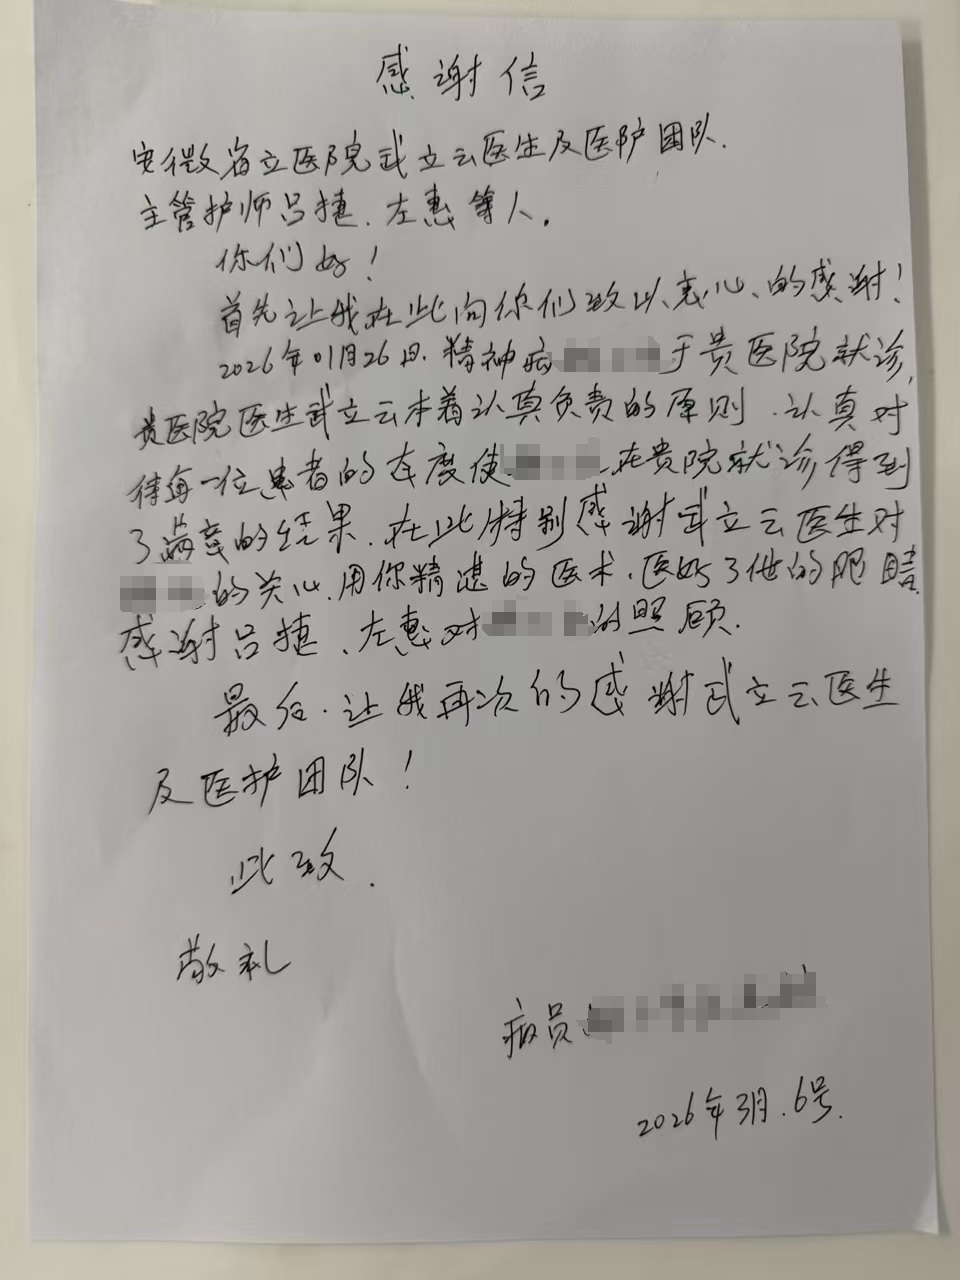 感谢信
安徽省立医院武立云医生及医护团队.
主管护师吕捷、左惠等人.
你们好!
首先让我在此向你们致以衷心的感谢!
2026年01月26日.精神病 于贵医院就诊,
贵医院医生武立云本着认真负责的原则.认真对
待每一位患者的态度使 在贵院就诊得到
了满意的结果.在此特别感谢武立云医生对
的关心.用你精湛的医术.医好了他的眼睛.
感谢吕捷、左惠对 的照顾.
最后.让我再次的感谢武立云医生
及医护团队!
此致.
敬礼
病员
2026年3月.6号.